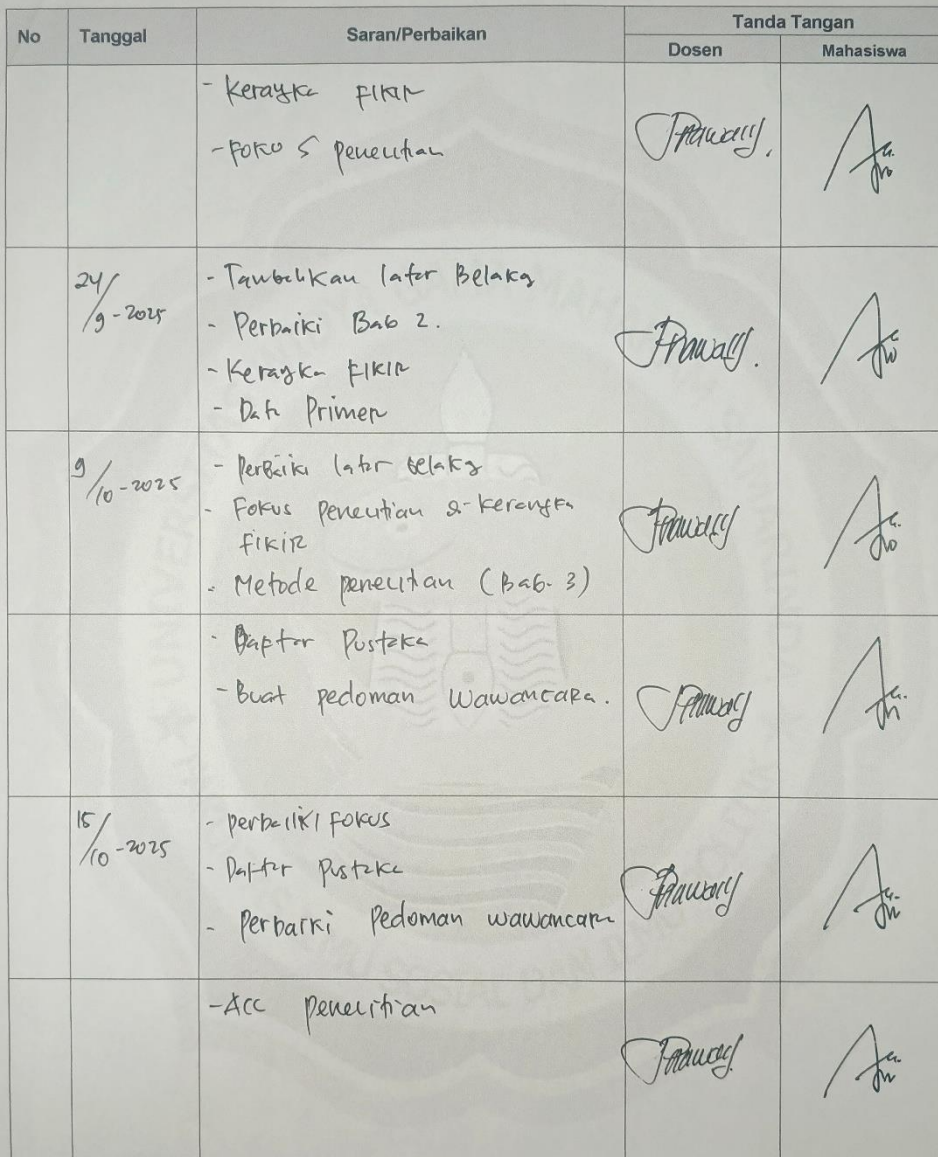 No Tanggal Saran/Perbaikan Tanda Tangan
Dosen Mahasiswa
- Kerangka FIKIR
- Fokus penelitian
24/9-2025
- Tambahkan latar Belakg
- Perbaiki Bab 2.
- Kerangka FIKIR
- Data Primer
9/10-2025
- Perbaiki latar belakg
- Fokus penelitian & kerangka
FIKIR
- Metode penelitian (Bab-3)
- Daptar Pustaka
- Buat pedoman wawancara.
15/10-2025
- perbaiki FOKUS
- Daftar Pustaka
- Perbaiki Pedoman wawancara
- Acc penelitian